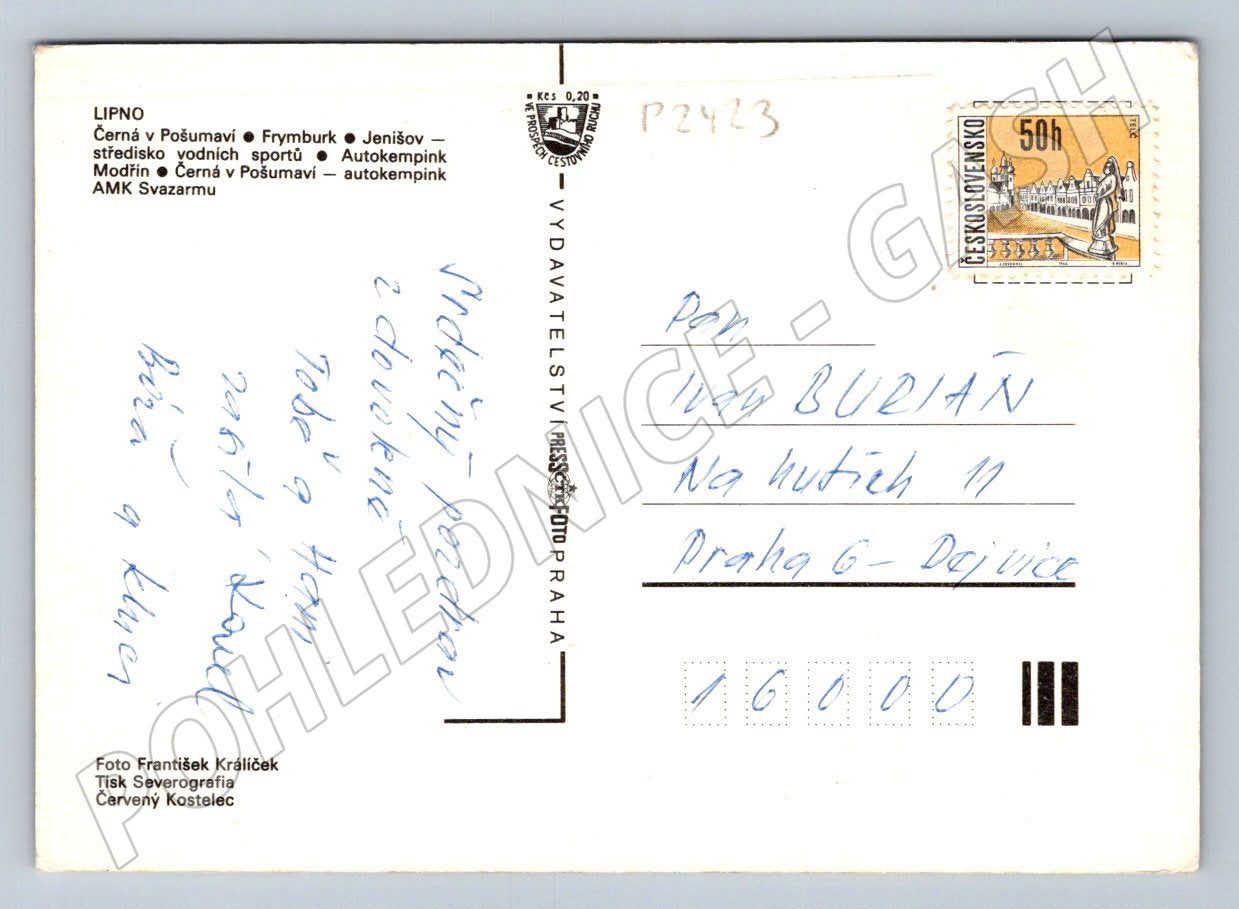 LIPNO
Černá v Pošumaví ● Frymburk ● Jenišov —
středisko vodních sportů ● Autokempink
Modřín ● Černá v Pošumaví — autokempink
AMK Svazarmu
Srdečný pozdrav
z dovolené
Tobě a
zasílá Karel
a
Foto František Králíček
Tisk Severografia
Červený Kostelec
Kčs 0,20
VE PROSPĚCH CESTOVNÍHO RUCHU
VYDAVATELSTVÍ PRESSFOTO PRAHA
ČTK
P2423
ČESKOSLOVENSKO
50h
TELČ
Pan
Ivan BURIÁN
Na hutích 11
Praha 6 – Dejvice
16000
POHLEDNICE - GASH